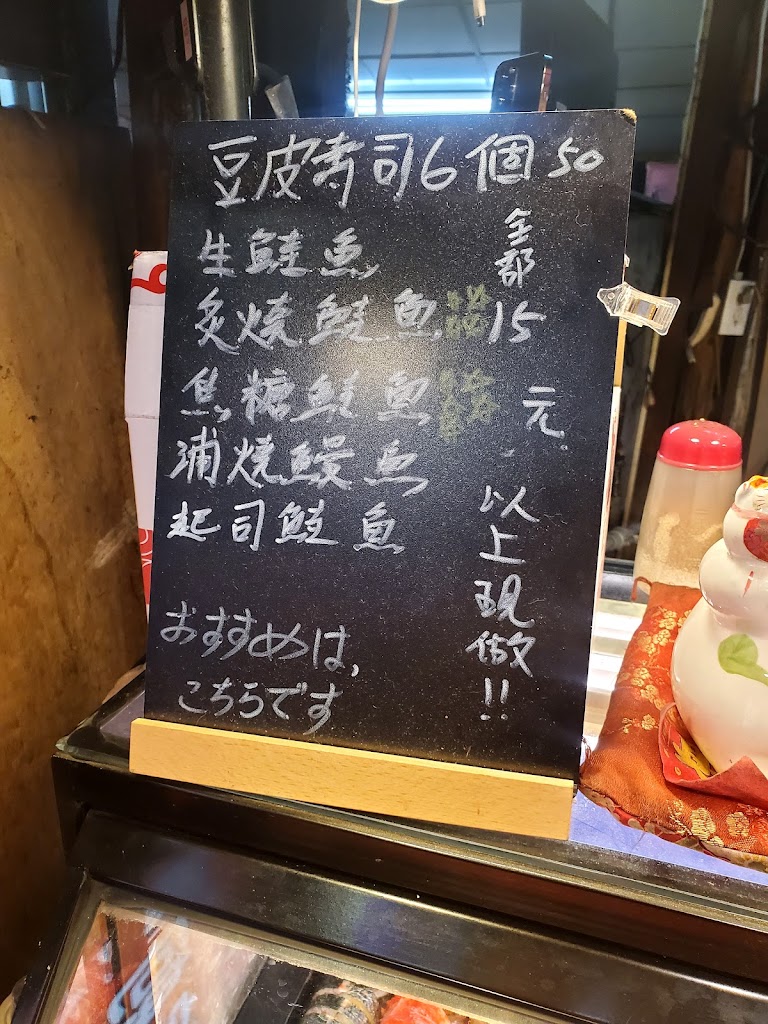 豆皮壽司6個50
生鮭魚
炙燒鮭魚
焦糖鮭魚
浦燒鰻魚
起司鮭魚
全部
15
元
以上現做!!
おすすめは,
こちらです